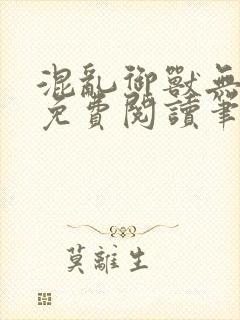 混亂御獸無
免費閱讀筆
莫離生